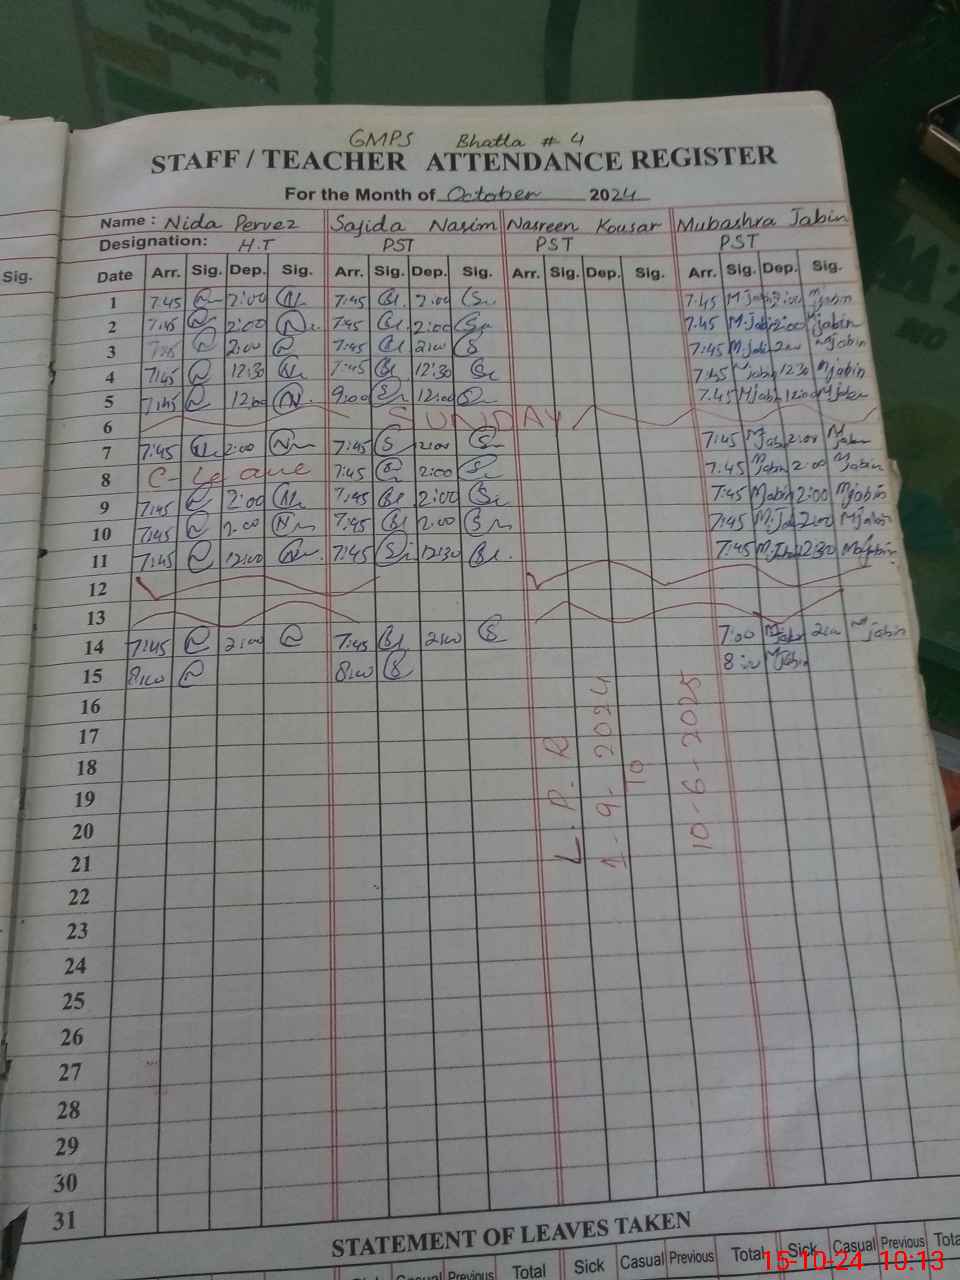 GMPS Bhatla # 4
STAFF / TEACHER ATTENDANCE REGISTER
For the Month of October 2024
Name : Nida Pervez Sajida Nasim Nasreen Kousar Mubashra Jabin
Designation: H.T PST PST PST
Sig. Date Arr. Sig. Dep. Sig. Arr. Sig. Dep. Sig. Arr. Sig. Dep. Sig. Arr. Sig. Dep. Sig.
1 7:45 2:00 7:45 2:00 7:45 M.jabin 2:00 Mjabin
2 7:45 2:00 7:45 2:00 7:45 M.jabin 2:00 Mjabin
3 7:45 2:00 7:45 2:00 7:45 M.jabin 2:00 Mjabin
4 7:45 12:30 7:45 12:30 7:45 Mjabin 12:30 Mjabin
5 7:45 12:00 9:00 12:00 7:45 Mjabin 12:00 Mjabin
6 SUNDAY
7 7:45 2:00 7:45 2:00 7:45 Mjabin 2:00 Mjabin
8 C-Leave 7:45 2:00 7:45 Mjabin 2:00 Mjabin
9 7:45 2:00 7:45 2:00 7:45 Mjabin 2:00 Mjabin
10 7:45 2:00 7:45 2:00 7:45 2:00 Mjabin
11 7:45 12:00 7:45 12:30 7:45 12:30 Mjabin
12
13
14 7:45 2:00 7:45 2:00 7:00 Mjabin 2:00 Mjabin
15 8:00 8:00 8:00 Mjabin
16
17
18
19
20
21
L.P.R
1-9-2024
10
10-6-2025
22
23
24
25
26
27
28
29
30
31
STATEMENT OF LEAVES TAKEN
Sick Casual Previous Total Sick Casual Previous Total Sick Casual Previous Tota
15-10-24 10:13